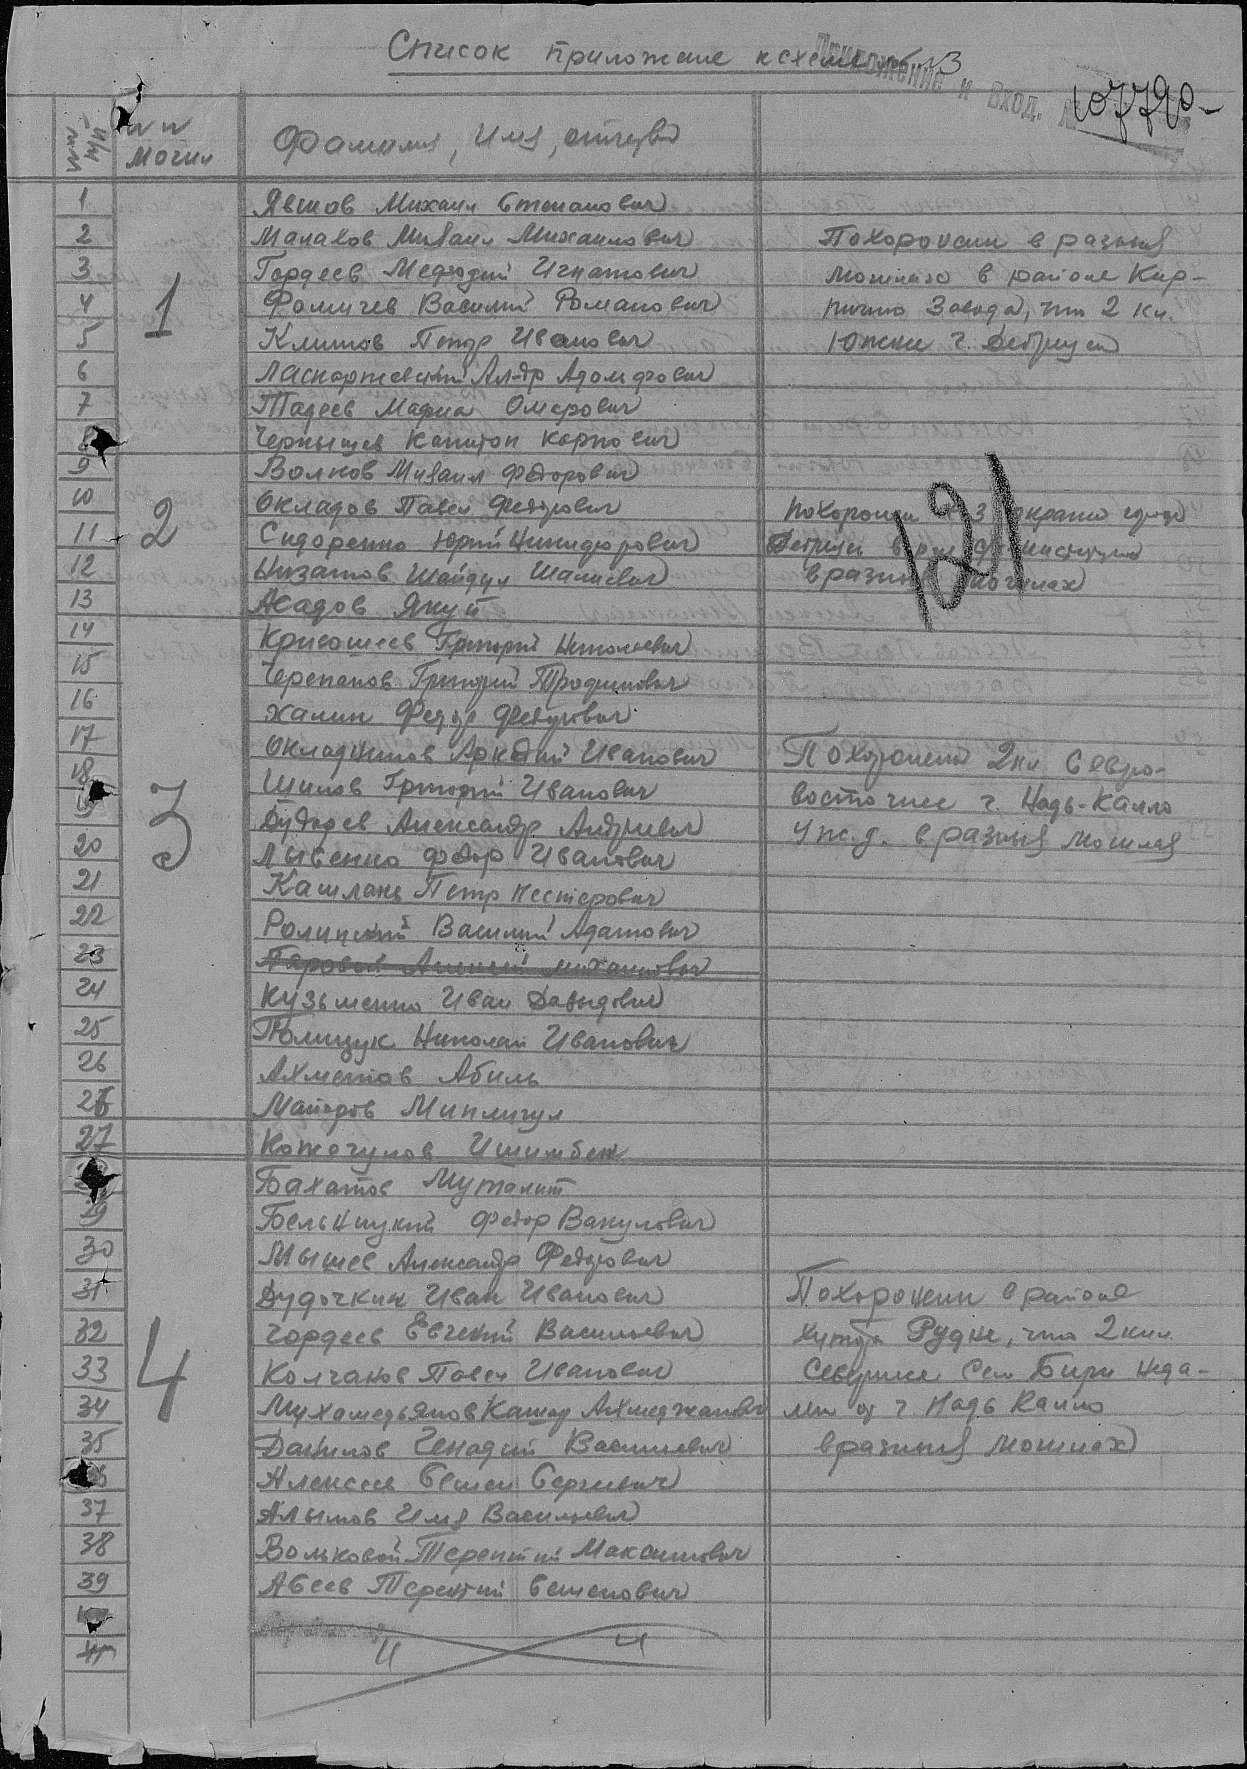 Список приложение к схеме № 3
Приложение к Вход. № 10779с
№№ п/п
№№ могил
Фамилия, Имя, отчество
1 Явшов Михаил Степанович
2 Малахов Михаил Михайлович
3 Гордеев Мефодий Игнатович
4 Фомичев Василий Романович
5 Климов Петр Иванович
6 Ласкоржевский Ал-др Адольфович
7 Тадеев Мафиа Омерович
8 Чернышев Капитон Карпович
1
Похоронен в разных
могилах в районе Кир-
пично Завода, что 2 км.
Южнее г. Дебрецен
9 Волков Михаил Федорович
10 Окладов Павел Федорович
11 Сидоренко Юрий Никифорович
12 Низамов Шайдул Шалиевич
13 Асадов Якуп
2
похоронен окраине города
Дебрецен в
в разных могилах
121
14 Кривошеев Григорий Николаевич
15 Черепанов Григорий Трофимович
16 Халин Федор Федорович
17 Окладников Аркадий Иванович
18 Шилов Григорий Иванович
19 Бударев Александр Андреевич
20 Лывенко Федор Иванович
21 Кашлань Петр Нестерович
22 Ролинский Василий Адамович
23 Паровой Алексей Михайлович
24 Кузьменко Иван Давыдович
25 Полищук Николай Иванович
26 Ахметов Абиль
26 Маторов Минлигул
27 Кожогулов Ишимбек
3
Похоронен 2 км. Северо-
восточнее г. Надь-Калло
у ж.д. в разных могилах
Бахатов Муталип
29 Бельницкий Федор Вакулович
30 Мышев Александр Федорович
31 Дудочкин Иван Иванович
32 Гордеев Евгений Васильевич
33 Колчанов Павел Иванович
34 Мухамедьянов Кашар Ахмеджанович
35 Данилов Генадий Васильевич
36 Алексеев Семен Сергеевич
37 Алымов Илья Васильевич
38 Вольховой Терентий Максимович
39 Авеев Терентий Семенович
4
Похоронен в районе
хутора Рудне, что 2 км
Севернее Сел Бири неда-
леко от г Надь Калло
в разных могилах